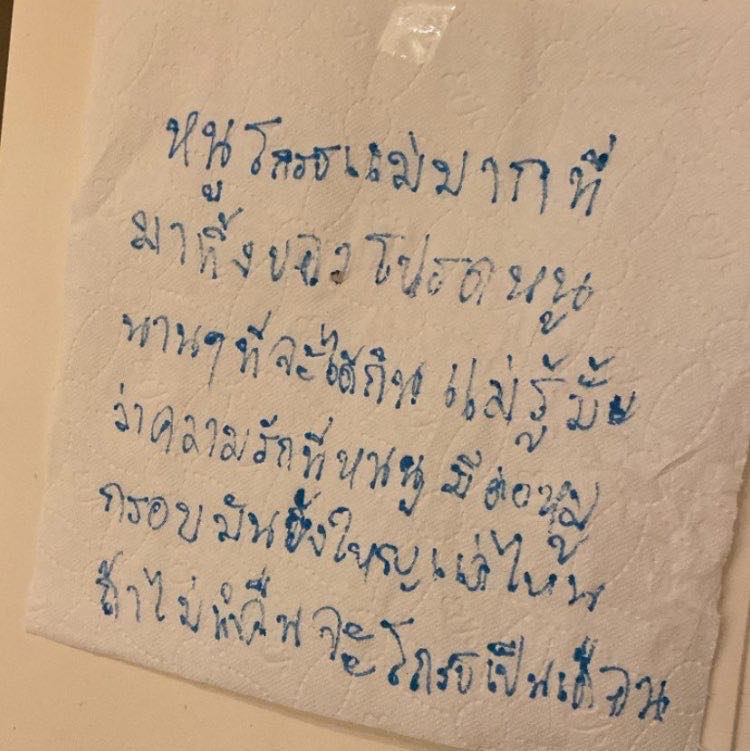 หนูโกรธแม่มากที่
มาทิ้งของโปรดหนู
นานๆทีจะได้กิน แม่รู้มั้ย
ว่าความรักที่หนูมีต่อหมู
กรอบมันยิ่งใหญ่แค่ไหน
ถ้าไม่คืนจะโกรธเป็นเดือน